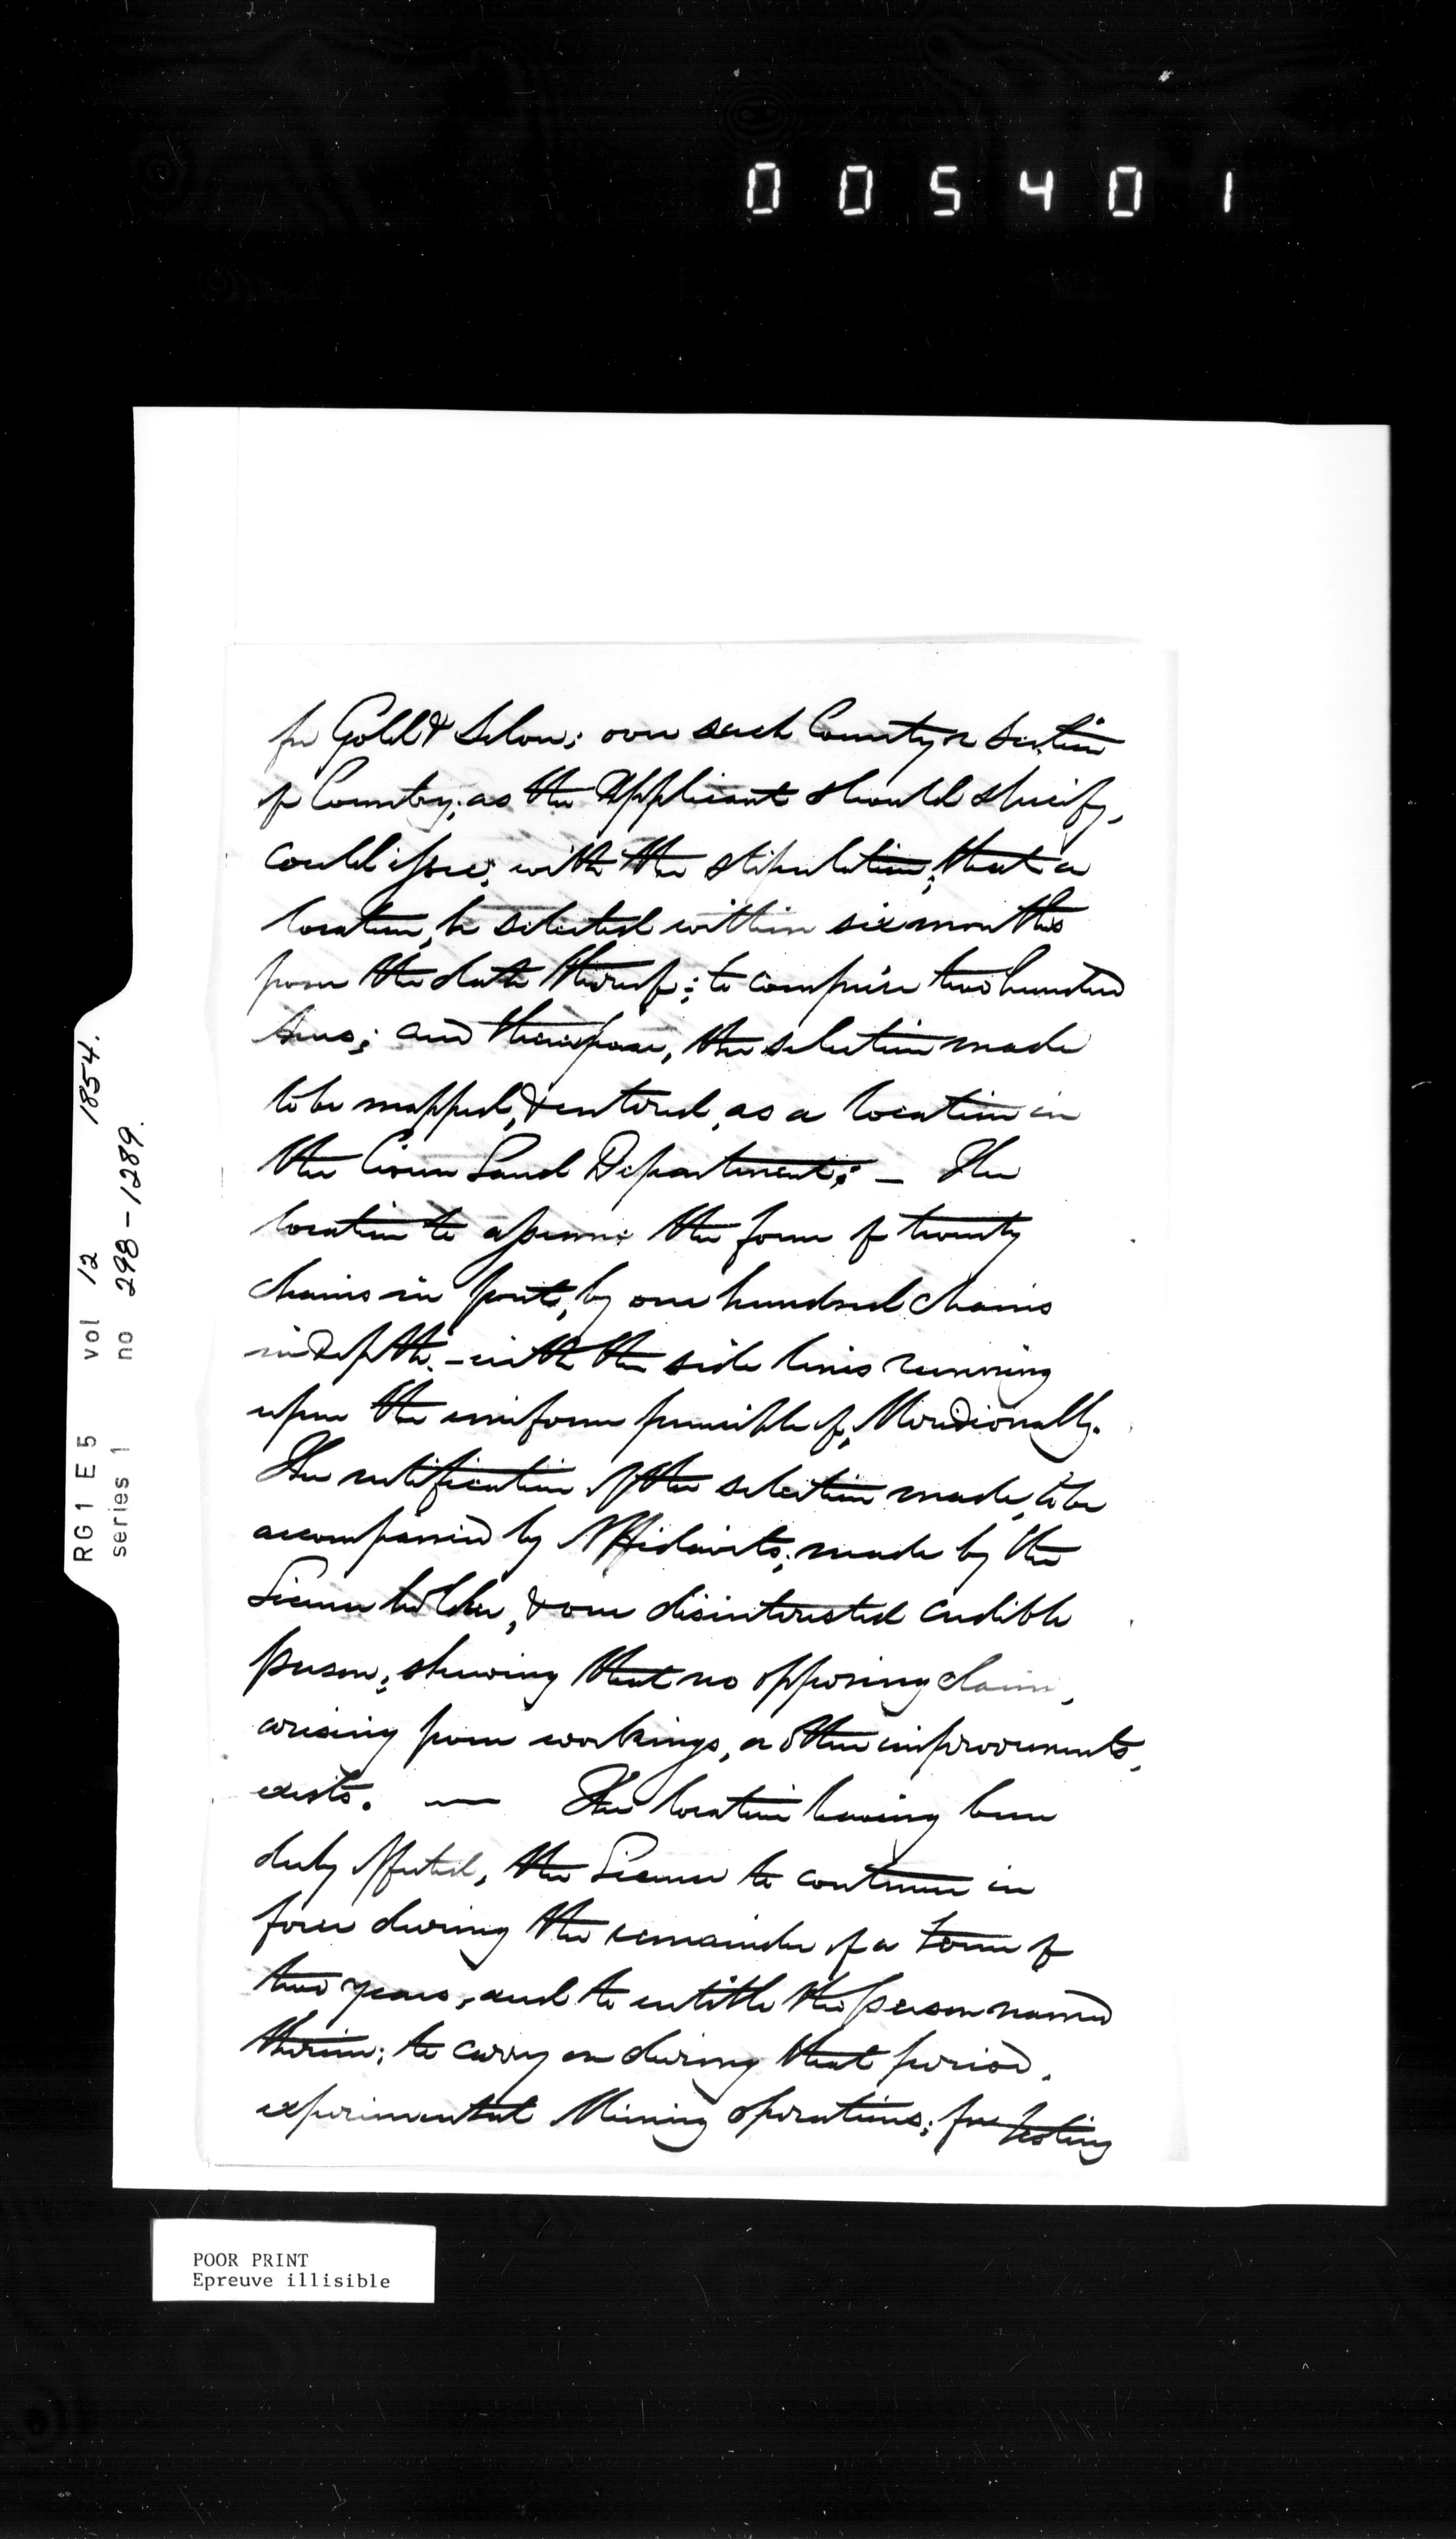 0 0 5 4 0 1
for Gold & Silver; over such County or Section
of Country; as the Applicant should specify,
could issue; with the stipulation; that a
location, be selected within six months
from the date thereof; to comprise two hundred
Acres; and thereupon, the selection made
to be mapped, & entered, as a location in
the Crown Land Department; — The
location to assume the form of twenty
chains in front, by one hundred chains
in depth. – with the side lines running
upon the uniform principle of, Meridionally.
The notification of the selection made, to be
accompanied by Affidavits; made by the
License holder, & one disinterested credible
person; shewing that no opposing claim,
arising from workings, or other improvements,
exists. — The location having been
duly effected, the License to continue in
force during the remainder of a term of
two years, and to entitle the person named
therein; to carry on during that period,
experimental Mining operations; for testing
RG1 E5 vol 12 1854.
series 1 no 298-1289.
POOR PRINT
Epreuve illisible